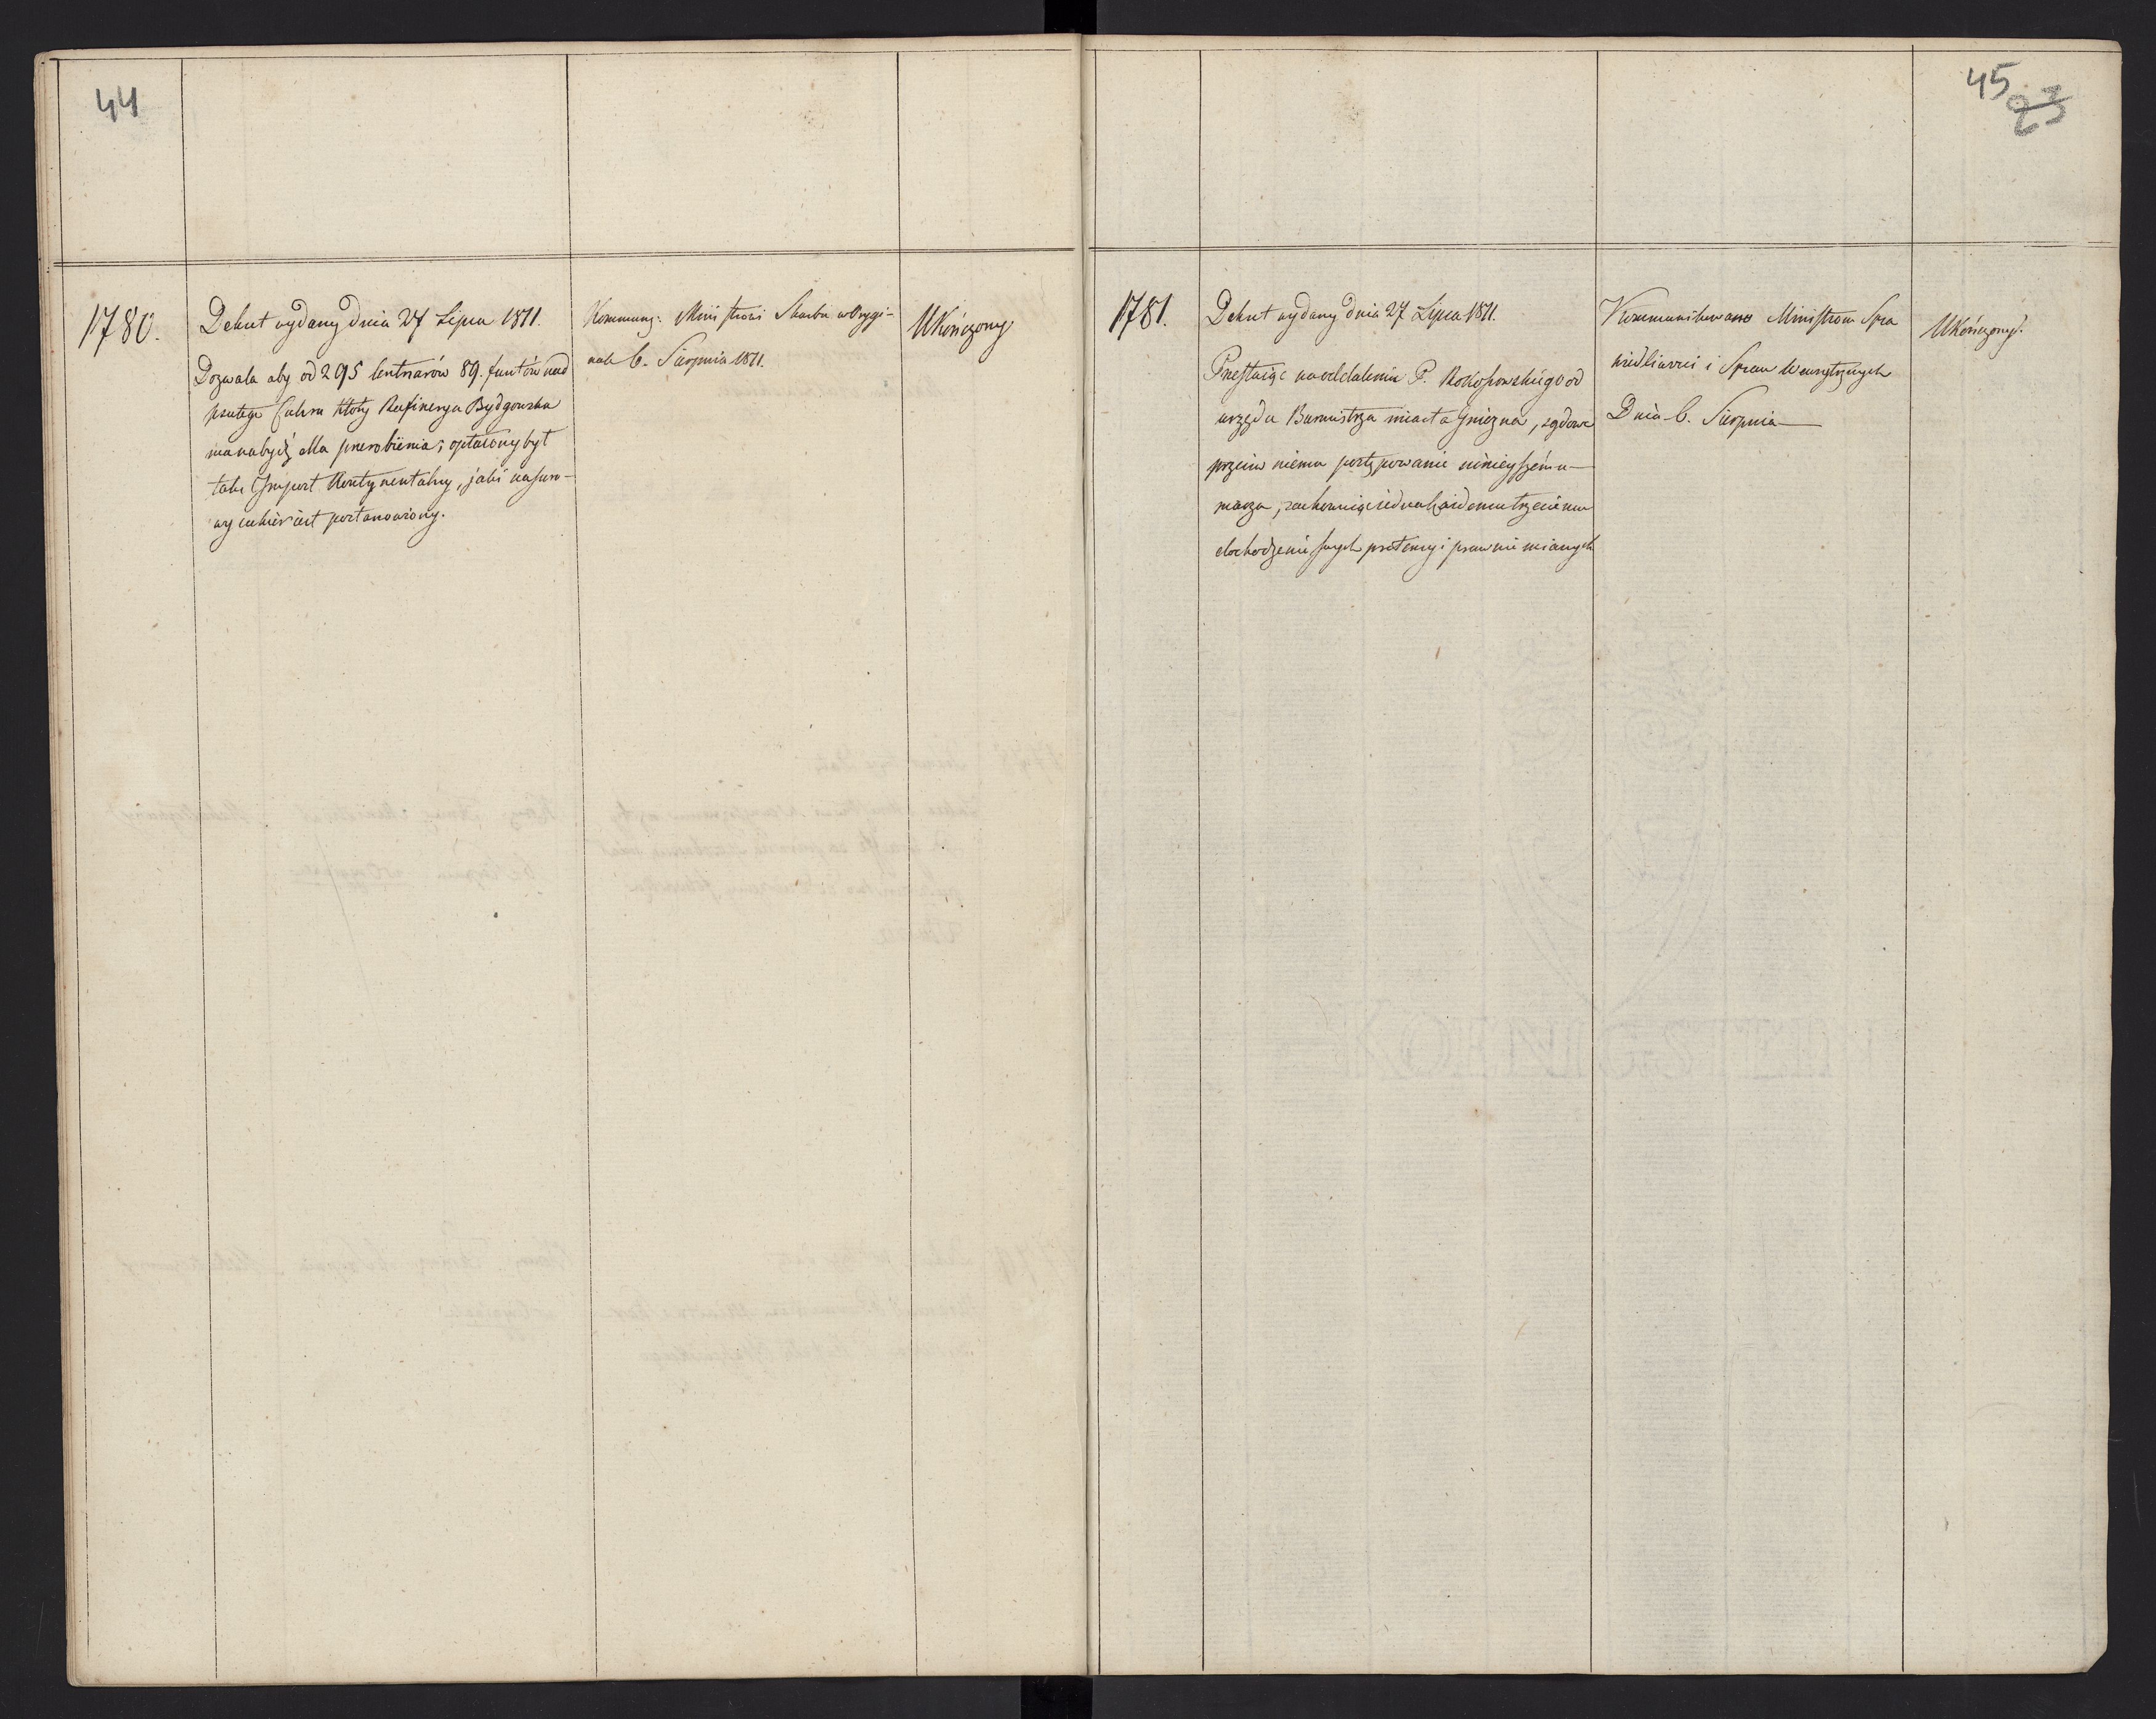 44
1780.
Dekret wydany dnia 27 Lipca 1811.
Dozwala aby od 295 Centnarów 89. funtów nad
psutego Cukru który Rafinerya Bydgowska
ma nabydź dla przerobienia; opłacony był
taki Impost Kontynentalny, jaki na suro-
wy cukier iest postanowiony.
Kommunz: Ministrowi Skarbu w Orygi-
nale 6. Sierpnia 1811.
Ukończony
45
23
1781.
Dekret wydany dnia 27 Lipca 1811.
Przestaiąc na oddaleniu P. Rokossowskiego od
urzędu Burmistrza miasta Gniezna, sądowe
przeciw niemu postępowanie ninieyszém u-
marza, zachowuiąc iednak każdemu trzeciemu
dochodzenie swych pretensyi prawnie mianych
Kommunikowano Ministrom Spra
wiedliwości i Spraw Wewnętrznych
Dnia 6. Sierpnia
Ukończony.